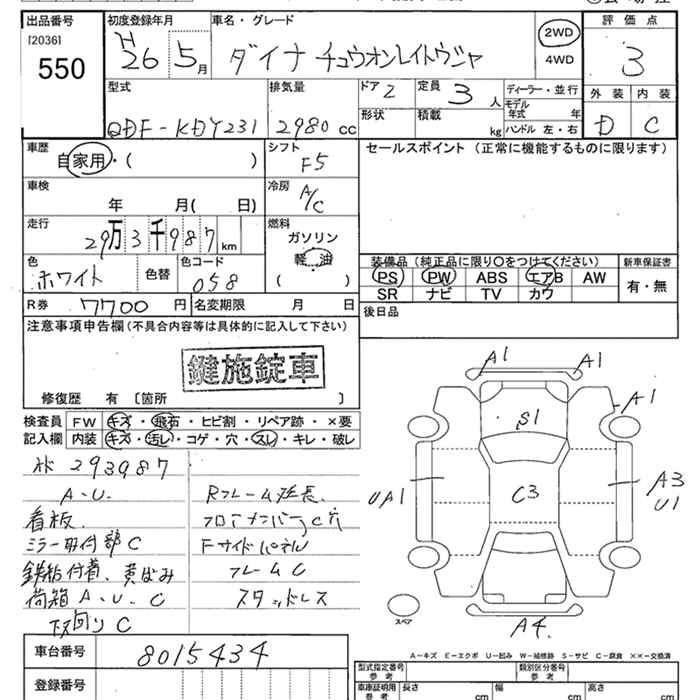 出品番号 初度登録年月 車名・グレード 評価点
[2036]
550
H26 5月 ダイナ チュウオンレイトウジャ 2WD 4WD 3
外装 内装
D C
型式 排気量 ドア 2 定員 3人 ディーラー・並行
モデル年式 年
QDF-KDY231 2980cc 形状 積載 kg ハンドル 左・右
車歴 シフト セールスポイント (正常に機能するものに限ります)
自家用・( ) F5
車検 冷房
年 月( 日) A/C
走行 燃料
29万3千987km ガソリン
軽油
( )
色 色替 色コード 装備品(純正品に限り〇をつけてください) 新車保証書
ホワイト 058 PS PW ABS エアB AW 有・無
SR ナビ TV カワ
R券 7700円 名変期限 月 日 後日品
注意事項申告欄(不具合内容等は具体的に記入して下さい)
鍵施錠車
修復歴 有 〔箇所 〕
検査員 FW キズ・飛石・ヒビ割・リペア跡・×要
記入欄 内装 キズ・汚レ・コゲ・穴・スレ・キレ・破レ
A1 A1
A1
S1
C3
UA1
A3
U1
A4
スペア
293987
A.U. Rフレーム延長
看板
ミラー取付部C Fサイドパネル
鉄粉付着、黄ばみ フレームC
荷箱A.U.C スタッドレス
下回りC
A-キズ E-エクボ U-凹み W-補修跡 S-サビ C-腐食 ××-交換済
車台番号 8015434
型式指定番号 参考 類別区分番号 参考
登録番号
車庫証明用 参考 長さ cm 幅 cm 高さ cm